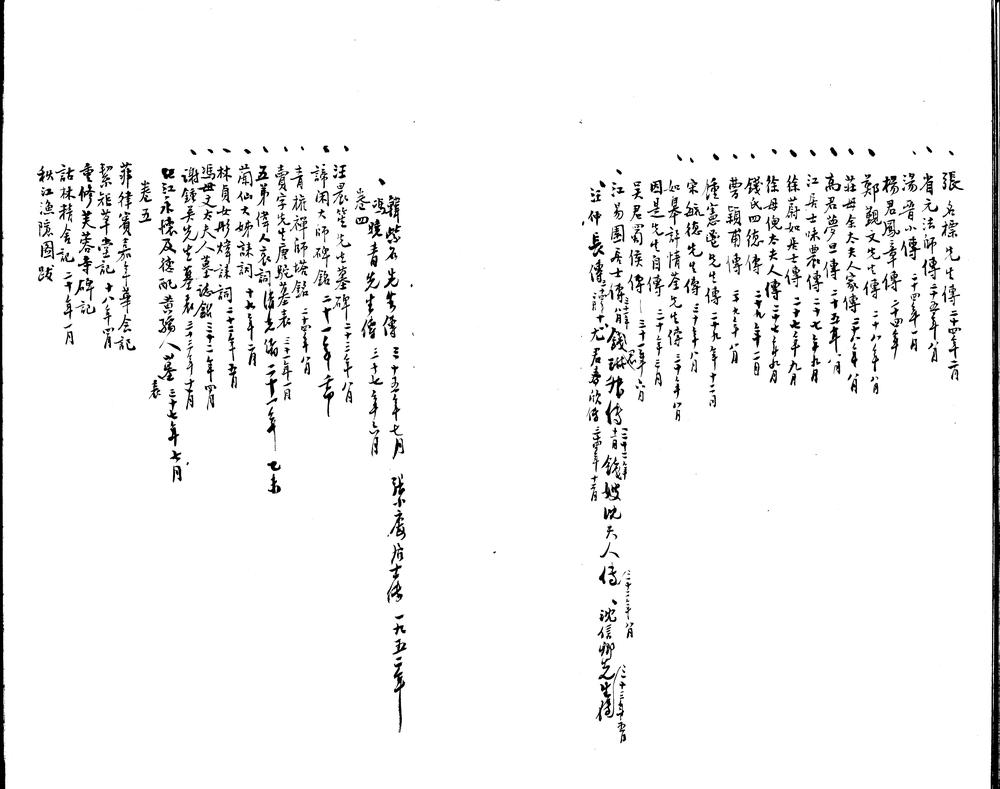 張名標先生傳 二十四年二月
省元法師傳 二十五年八月
湯晉小傳 二十四年一月
楊君鳳章傳 二十四年
鄭觀文先生傳 二十六年八月
莊母余太夫人家傳 二十六年八月
高君夢旦傳 二十五年八月
江居士味農傳 二十七年九月
徐蔚如居士傳 二十七年九月
徐母倪太夫人傳 二十七年九月
錢氏四德傳 二十九年二月
曹穎甫傳 二十七年八月
濮憲丞先生傳 二十九年十二月
宋毓德先生傳 三十年八月
如皋許情荃先生傳 三十年八月
因是先生自傳 二十年三月
吳君蜀侯傳 三十一年六月
江易園居士傳 錢琳叔傳 三十一年十一月 錢嫂沈夫人傳 三十三年八月 沈信卿先生傳 三十三年五月
汪仲長傳 尤君春欣傳 三十四年十二月
韓紫石先生傳 三十五年七月 張小廔居士傳 一九五二年
馮曉青先生傳 三十七年六月
卷四
汪晨笙先生墓碑 二十三年八月
諦閑大師碑銘 二十一年
青權禪師塔銘 二十四年八月
賣字先生唐駝墓表 三十一年一月
五弟偉人哀詞 二十一年 乙未
蘭仙大姊誄詞 十七年二月
林貞女彤煒誄詞 二十三年五月
馮母文太夫人墓誌銘 三十二年四月
謝鍾英先生墓表 二十三年十二月
江永懷及德配黃孺人墓表 三十七年七月
卷五
菲律賓嘉年華會記
絜矩草堂記 十八年四月
重修芙蓉寺碑記
詁林精舍記 二十年一月
秋江漁隱圖跋